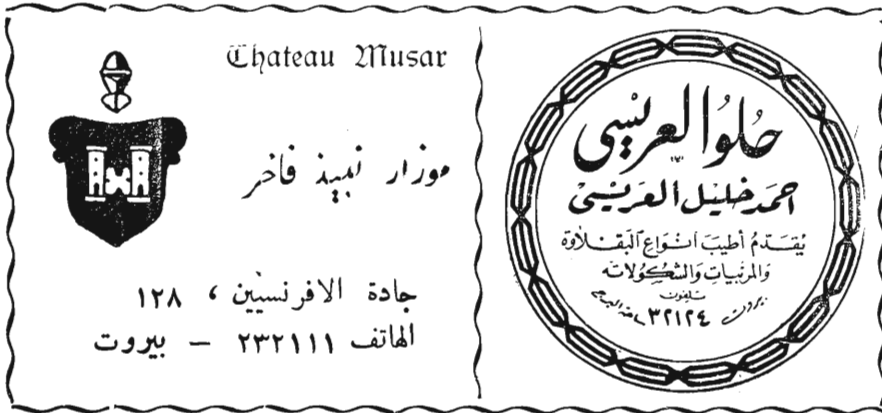 Chateau Musar
موزار نبيذ فاخر
جادة الافرنسيين ، ١٢٨
الهاتف ٢٣٢١١١ — بيروت
حلو العريسي
احمد خليل العريسي
يقدم أطيب أنواع البقلاوة
والمربيات والشكولاته
تلفون
بيروت ٣٢١٢٤ ساحة البرج